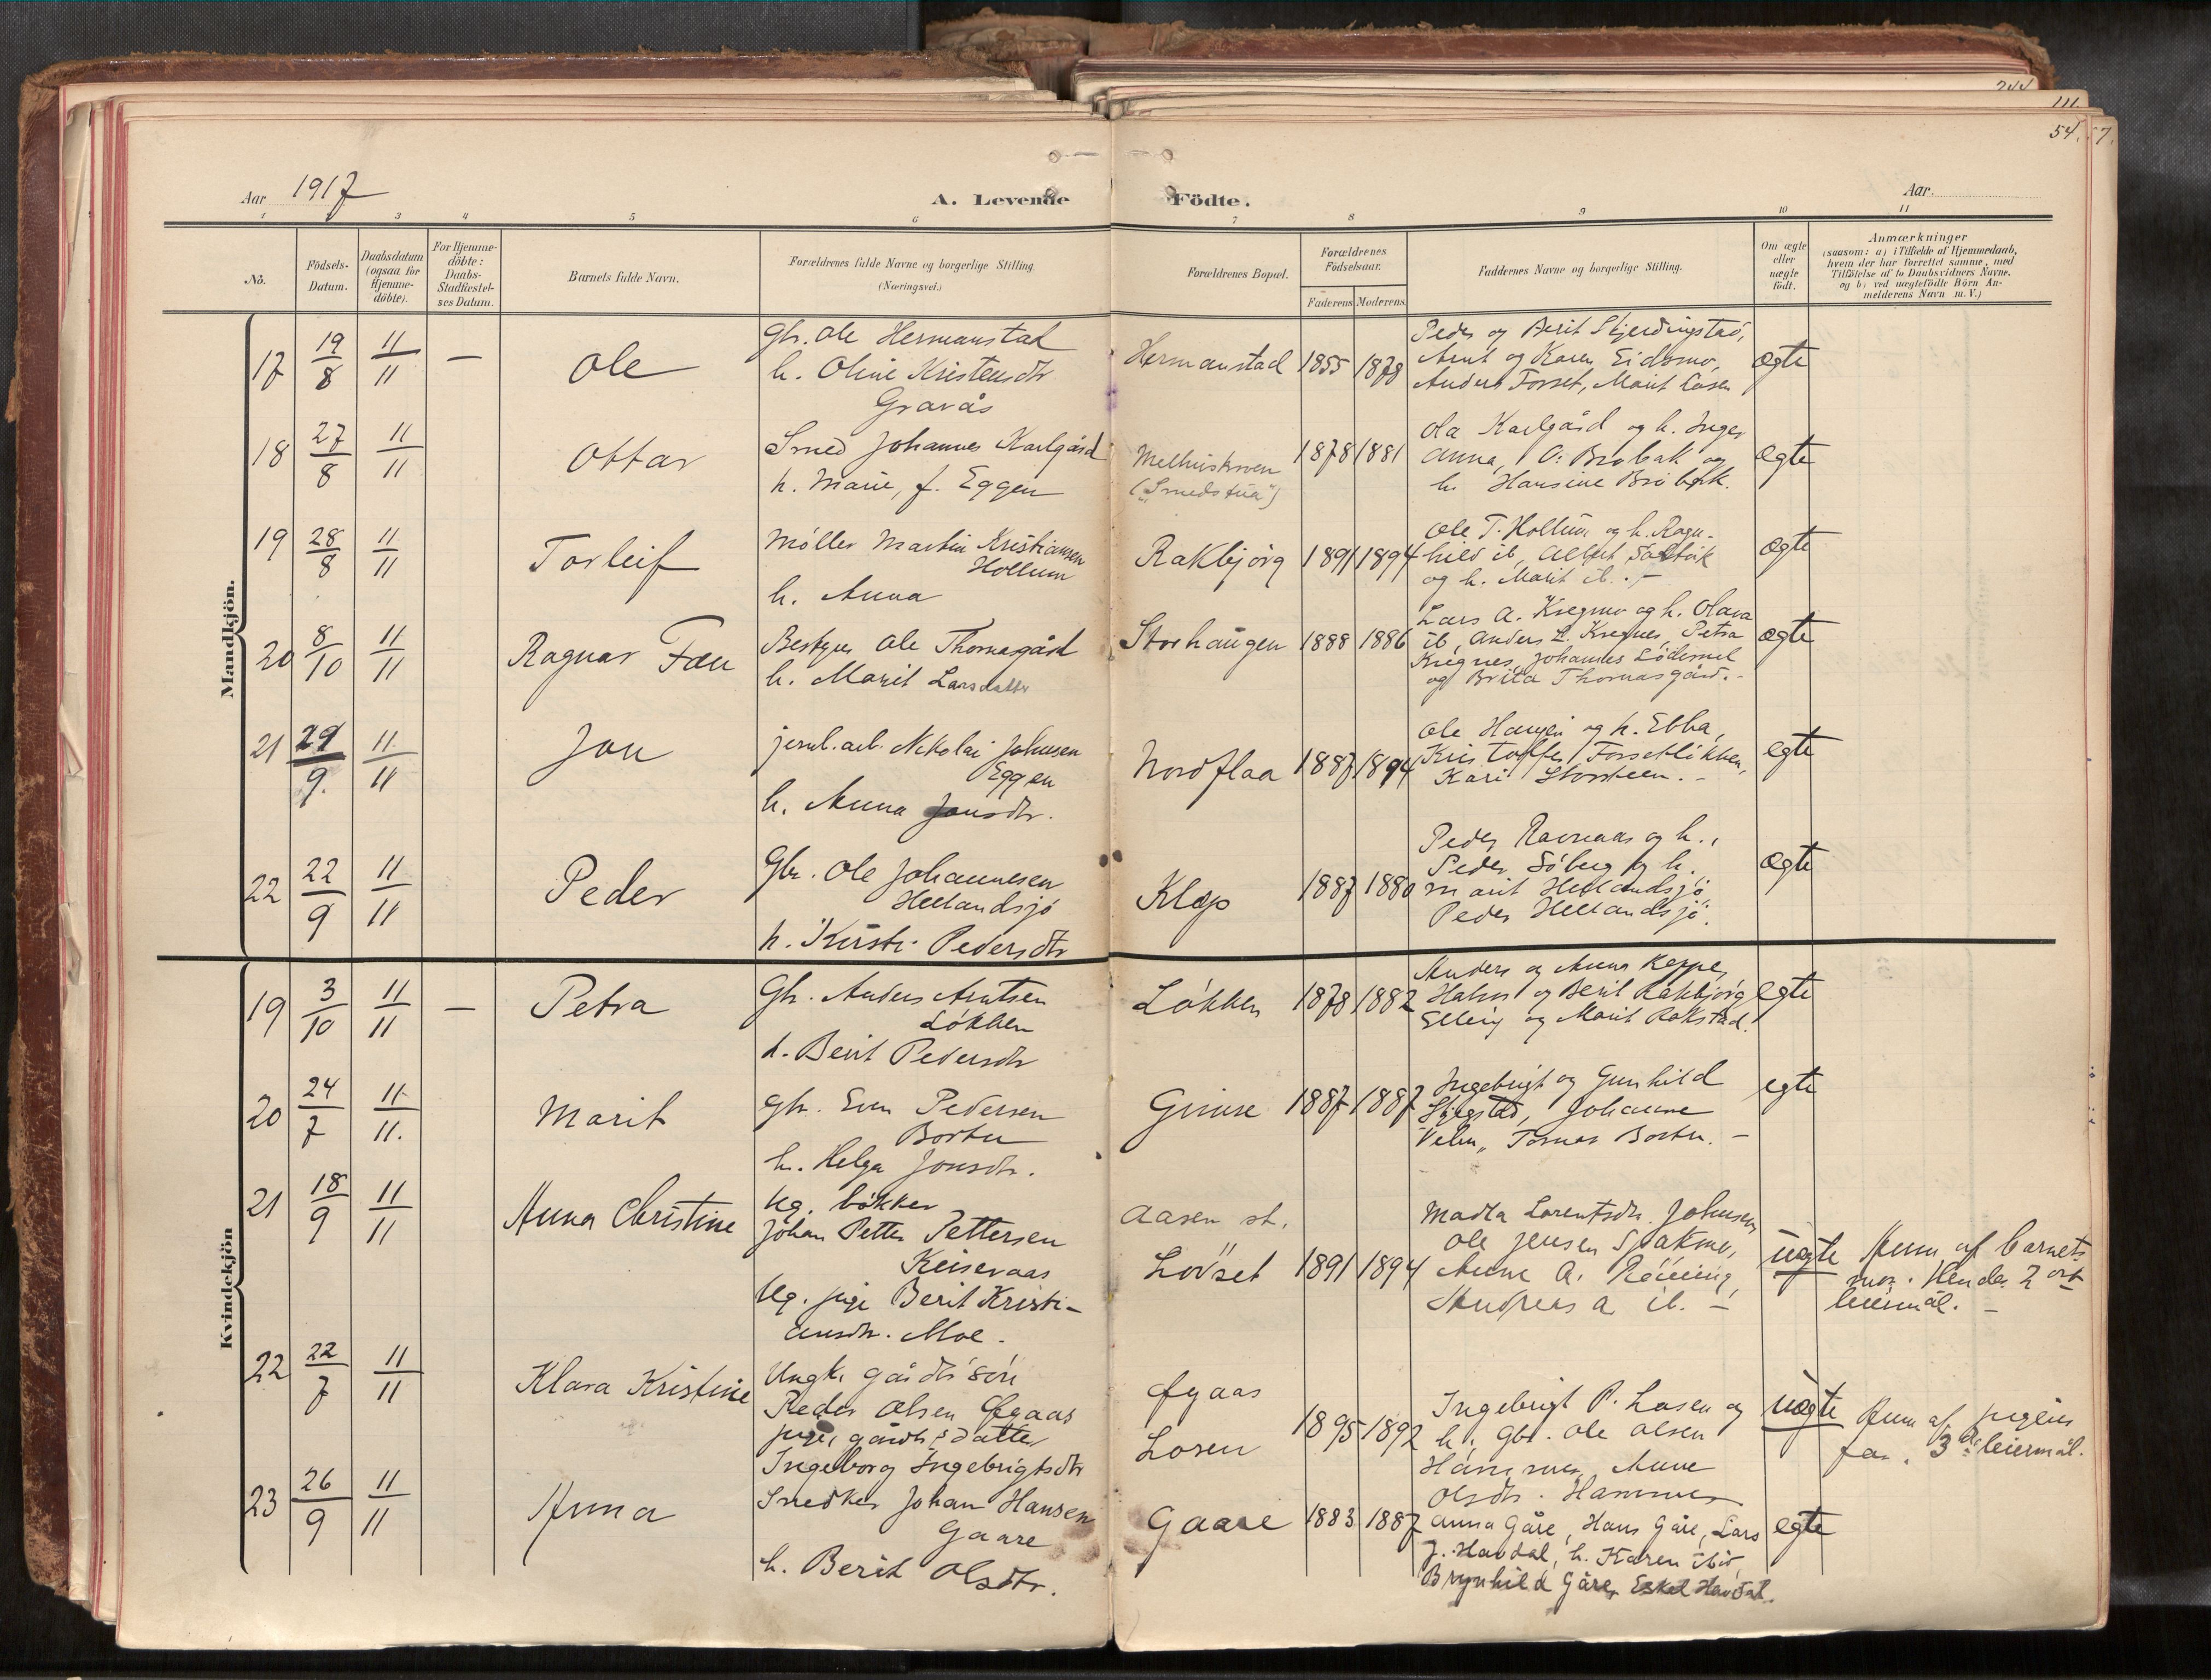 244
111.
54. 57.
Aar 1917
A. Levende Födte.
Aar.
1 2 3 4 5 6 7 8 9 10 11
No.
Födsels-
Datum.
Daabsdatum
(ogsaa for
Hjemme-
döbte).
For Hjemme-
döbte:
Daabs-
Stadfæstel-
ses Datum.
Barnets fulde Navn.
Forældrenes fulde Navne og borgerlige Stilling
(Næringsvei.)
Forældrenes Bopæl.
Forældrenes
Födselsaar.
Faderens Moderens
Faddernes Navne og borgerlige Stilling.
Om ægte
eller
uægte
födt.
Anmærkninger
(saasom: a) i Tilfælde af Hjemmedaab,
hvem der har forrettet samme, med
Tilföielse af to Daabsvidners Navne.
og b) ved uægtefödte Börn An-
melderens Navn m. V.)
Mandkjön.
17
19/8
11/11
—
Ole
Gbr. Ole Hermanstad
h. Oline Kristensdtr
Gravås
Hermanstad
1855
1878
Peder og Berit Skjerdingstad,
Arnt og Karen Eidsmo,
Anders Forset, Marit Losen
ægte
18
27/8
11/11
Ottar
Smed Johannes Karlgård
h. Marie, f. Eggen
Melhuskroen
("Smedstua")
1878
1881
Ola Karlgård og h. Inger
Anna, O. Brobak og
h. Hansine Brobak.
ægte
19
28/8
11/11
Torleif
Möller Martin Kristiansen
Hollum
h. Anna
Rakbjörg
1891
1894
Ole T. Hollum og h. Ragn-
hild ib,
og h. Marit ib. –
ægte
20
8/10
11/11
Ragnar
Bestyrer Ole Thomasgård
h. Marit Larsdatter
Storhaugen
1888
1886
Lars A. Kregnes og h. Olava
ib, Anders L. Kregnes, Petra
Kregnes, Johannes Lödemel
og Brita Thomasgård. -
ægte
21
29/9.
11/11
Jon
jernb.arb. Nikolai Johnsen
Eggen
h. Anna Jonsdtr.
Nordflaa
1887
1894
Ole Haugen og h. Ebba,
Kristoffer Forsetlökken,
Kari Storsteen. -
egte
22
22/9
11/11
Peder
Gbr. Ole Johannesen
Hellandsjö
h. Kirsti Pedersdtr
Klep
1887
1880
Peder Ravnaas og h.,
Peder Söberg og h.,
Marit Hellandsjö,
Peder Hellandsjö.
ægte
Kvindekjön
19
3/10
11/11
—
Petra
Gbr. Anders Arntsen
Lökken
h. Berit Pedersdtr
Lökken
1878
1882
Anders og Anna Keppe,
og Berit Rakbjörg
Elling og Marit Rakstad.
egte
20
24/7
11/11.
Marit
Gbr. Even Pedersen
Borten
h. Helga Jonsdtr.
Gimse
1887
1887
Ingebrigt og Gunhild
Johanne
Tomas Borten. –
egte
21
18/9
11/11
Anna Christine
Ug. bökker
Johan Petter Pettersen
Keiseraas
Ug. pige Berit Kristi-
ansdtr. Moe.
Aasen st.
Lövset
1891
1894
Lorentsdtr. Johnsen
Ole Jensen
Anne A. Rönning,
Andreas A. ib. –
uegte
Anm. af barnets
mor. Hendes 2det
leiermål. –
22
22/7
11/11
Klara Kristine
Ungk. gårdb.sön
Peder Olsen Øgaas
pige, gårdb.datter
Ingeborg Ingebrigtsdtr
Øgaas
Losen
1895
1892
Ingebrigt P. Losen og
h., gbr. Ole Olsen
Hammer, Anne
Olsdtr. Hammer
uegte
Anm af pigens
far. 3de leiermål.
23
26/9
11/11
Anna
Snedker Johan Hansen
Gaare
h. Berit Olsdtr.
Gaare
1883
1887
Anna Gåre, Hans Gåre, Lars
J. Havdal, h. Karen ibid,
Brynhild Gåre, Eskel Havdal.
egte